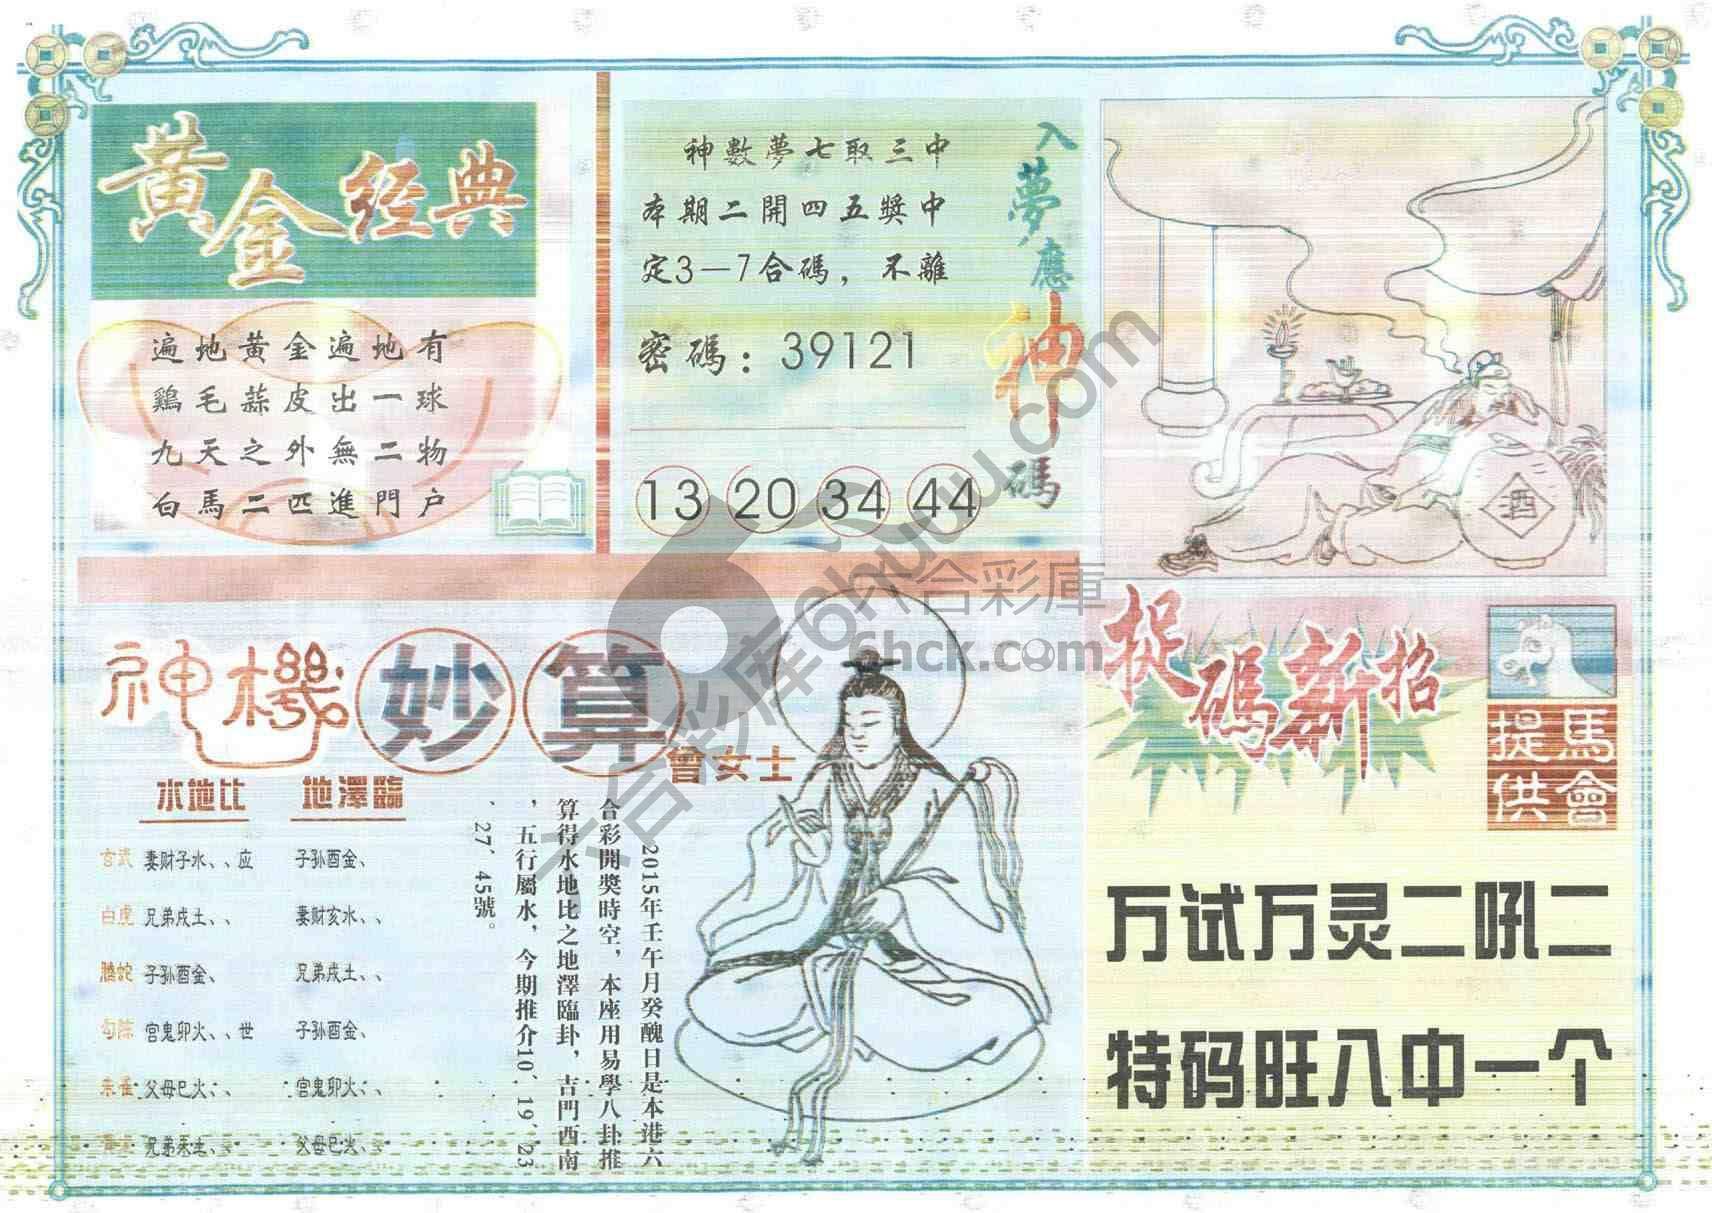 黄金经典
遍地黄金遍地有
鷄毛蒜皮出一球
九天之外無二物
白馬二匹進門户
入夢應神碼
神數夢七取三中
本期二開四五獎中
定3—7合碼，不離
密碼：39121
13 20 34 44
酒
神機妙算
曾女士
水地比 地澤臨
玄武 妻财子水、、应 子孙酉金、
白虎 兄弟戌土、、 妻财亥水、、
螣蛇 子孙酉金、 兄弟戌土、、
勾陈 官鬼卯火、、世 子孙酉金、
朱雀 父母巳火、、 官鬼卯火、、
兄弟未土、、 父母巳火、
2015年壬午月癸醜日是本港六
合彩開獎時空，本座用易學八卦推
算得水地比之地澤臨卦，吉門西南
，五行屬水，今期推介10、19、23
、27、45號。
捉碼新招
馬會提供
万试万灵二吼二
特码旺入中一个
六合彩庫
6hck.com
六合彩库6huu.com